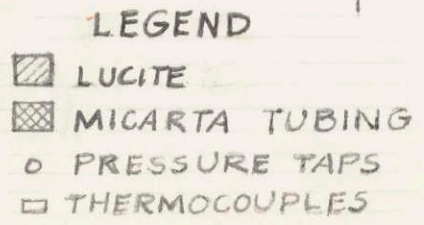 LEGEND
LUCITE
MICARTA TUBING
PRESSURE TAPS
THERMOCOUPLES